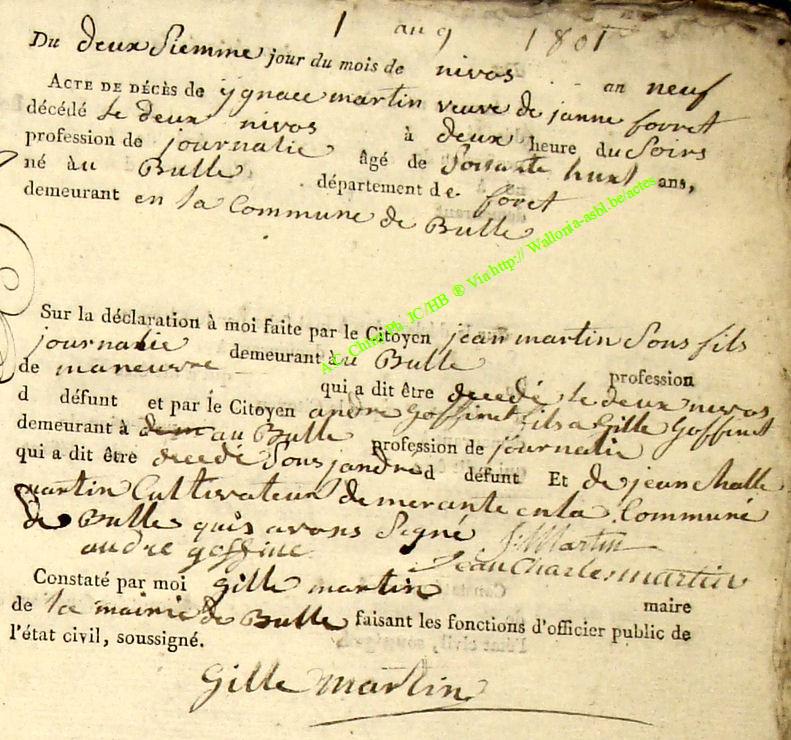 1 an 9 1801
Du deux Siemme jour du mois de nivos an neuf
ACTE DE DÉCÈS de ygnace martin veuve de janne forret
décédé le deux nivos à deux heure du Soirs
profession de journalie âgé de Soisante huit ans,
né à au Bulle département de foret
demeurant en la Commune de Bulle
A.C. Chiny Ph. JC/HB ® Via http:// Wallonia-asbl.be/actes
Sur la déclaration à moi faite par le Citoyen jean martin Sons fils
journalie demeurant à au Bulle profession
de maneuvre qui a dit être decedé le deux nivos
d défunt et par le Citoyen andre Goffinet fils a Gille Goffinet
demeurant à au Bulle profession de journalie
qui a dit être decede Sons jandre d défunt Et de jean Challe
martin Cultivateur demerante en la Communé
de Bulle quis avons Signé J: Martin
andre goffine Jean Charle martin
Constaté par moi gille martin maire
de la mairie de Bulle faisant les fonctions d'officier public de
l'état civil, soussigné.
Gille martin